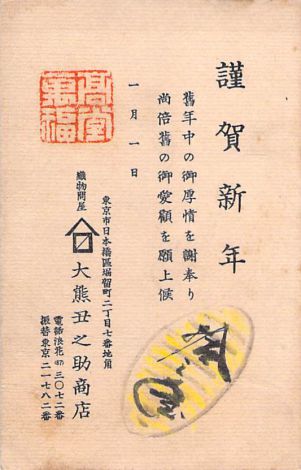 謹賀新年
舊年中の御厚情を謝奉り
尚倍舊の御愛顧を願上候
一月一日
高堂
萬福
東京市日本橋區堀留町二丁目七番地角
織物問屋
大熊丑之助商店
電話浪花(67)三〇七二番
振替東京二一七八二番